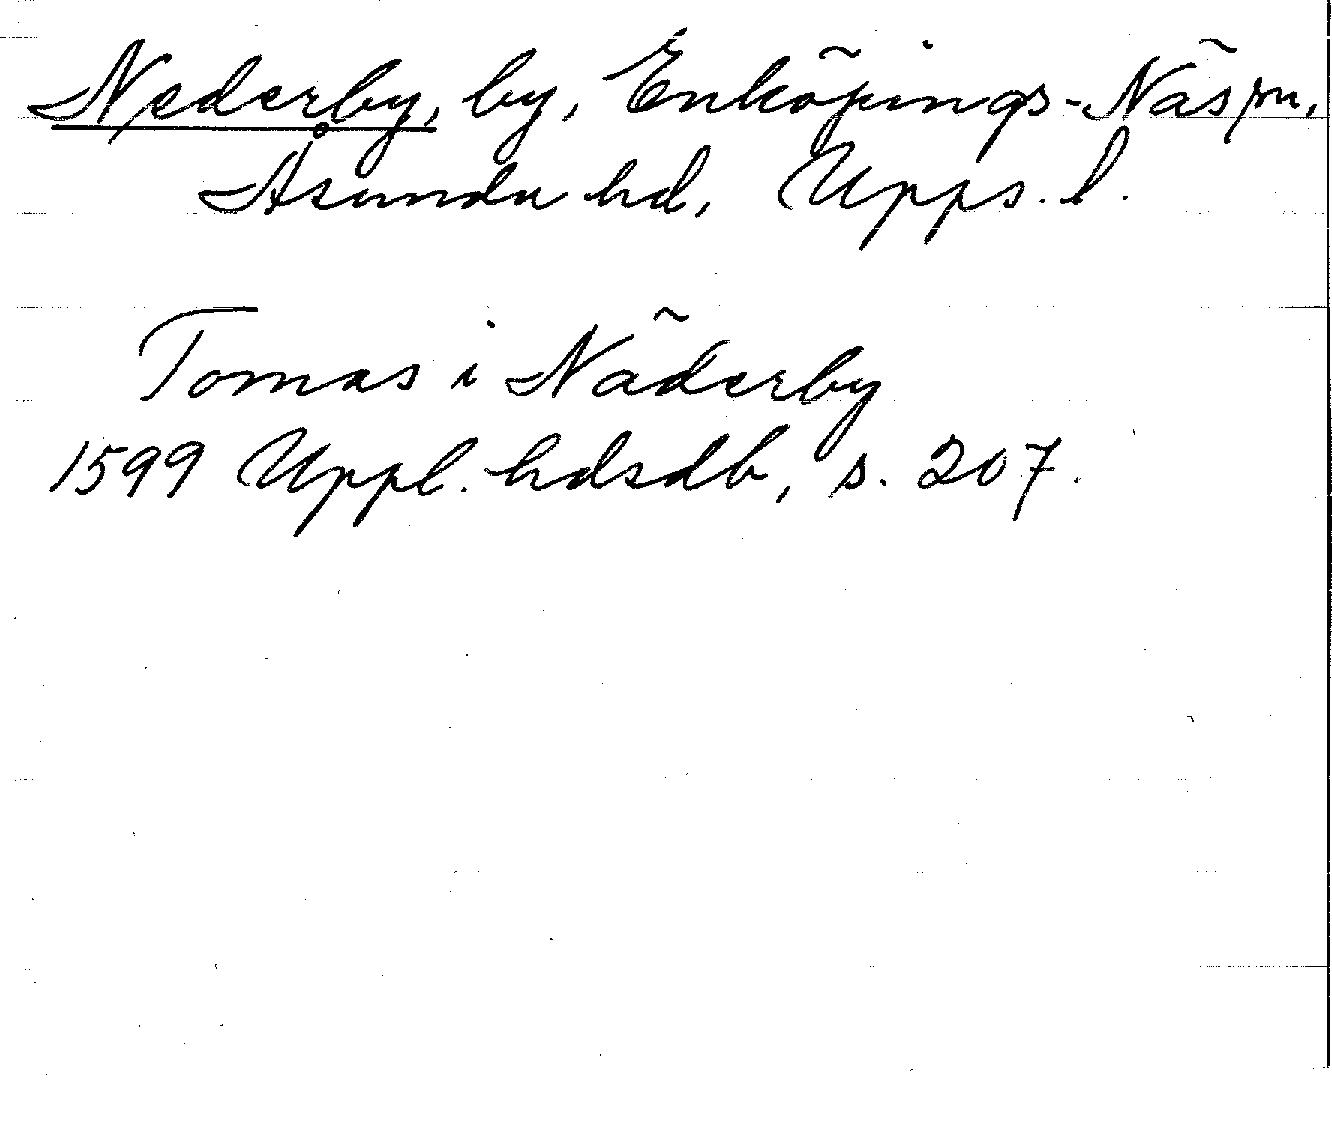 Nederby, by, Enköpings-Näs sn,
Åsunda hd, Upps. l.
Tomas i Näderby
1599 Uppl. hdsdb, s. 207.